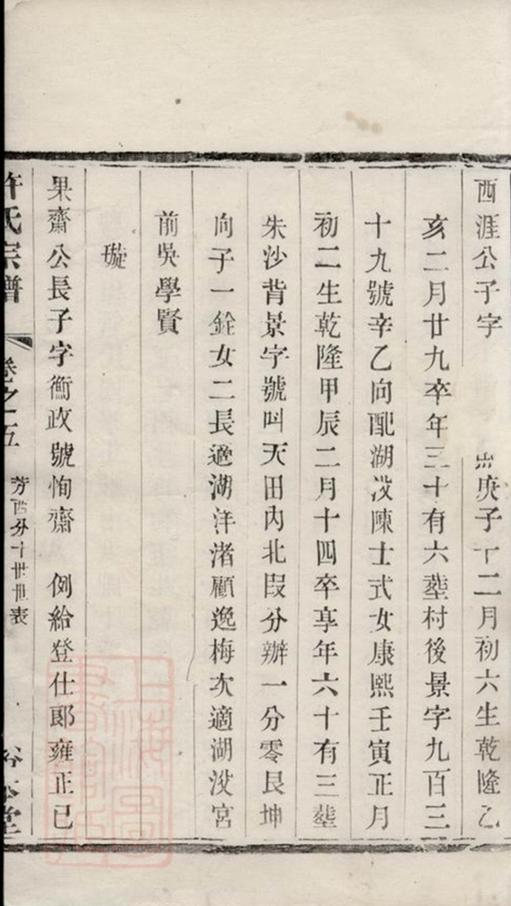 西涯公子字 庚子十二月初六生乾隆乙
亥二月廿九卒年三十有六塟村後景字九百三
十九號辛乙向配湖㳇陳士式女康熙壬寅正月
初二生乾隆甲辰二月十四卒享年六十有三塟
朱沙背景字號叫天田內北叚分辦一分零艮坤
向子一銓女二長適湖洋渚顧逸梅次適湖㳇宮
前吳學賢
璇
果齋公長子字衡政號恂齋 例給登仕郎雍正已
許氏宗譜 卷之五 芳 分十世世表